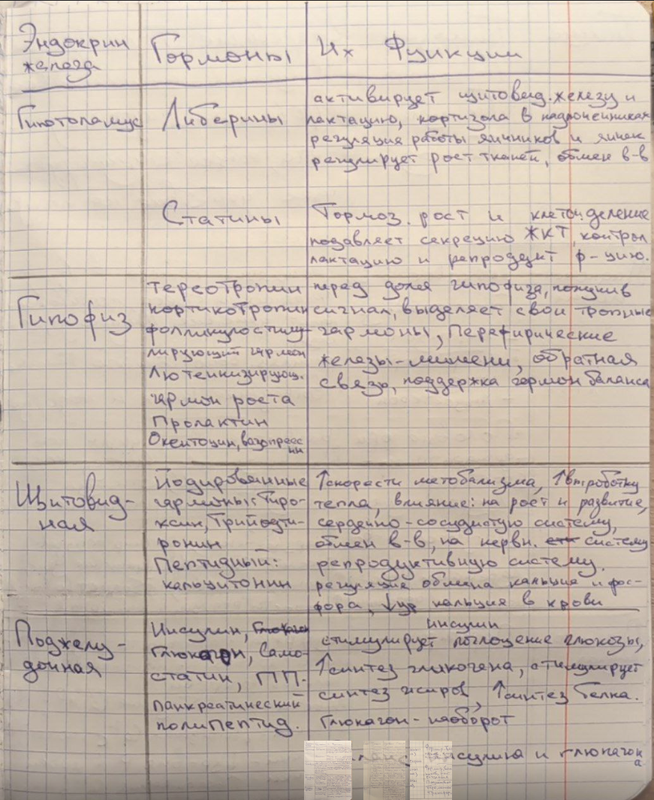 Эндокрин железа
Гормоны
Их Функции
Гипоталамус
Либерины
активирует щитовид. железу и
лактацию, кортизола в надпочечниках
регуляция работы яичников и яичек
регулирует рост тканей, обмен в-в
Статины
Тормоз. рост и клеточ. деление
подавляет секрецию ЖКТ, контрол
лактацию и репродукт ф-цию.
Гипофиз
тереотропин
кортикотропин
фолликулостиму-
лирующий гармон
Лютеинизирующ.
гармон роста
Пролактин
Окситоцин, вазопресс
ин
перед доля гипофиза, получив
сигнал, выделяет свои тропные
гармоны, Перефирические
железы-мишени, обратная
связь, поддержка гормон баланса
Щитовид-
ная
Йодированные
гармоны: Тиро-
ксин, Трийодти-
ронин
Пептидный:
кальцитонин
↑скорости метобализма, ↑выработку
тепла, влияние: на рост и развитие,
сердечно-сосудистую систему,
обмен в-в, на нервн. систему
репродуктивную систему.
регуляция обмена кальция и фос-
фора, ↓ур кальция в крови
Поджелу-
дочная
Инсулин,
Глюкагон, Само-
статин, ПП-
панкреатический
полипептид.
инсулин
стимулирует поглощение глюкозы,
↑синтез гликогена, стимулирует
синтез жиров, ↑синтез белка.
Глюкагон-наоборот
инсулина и глюкагон
а